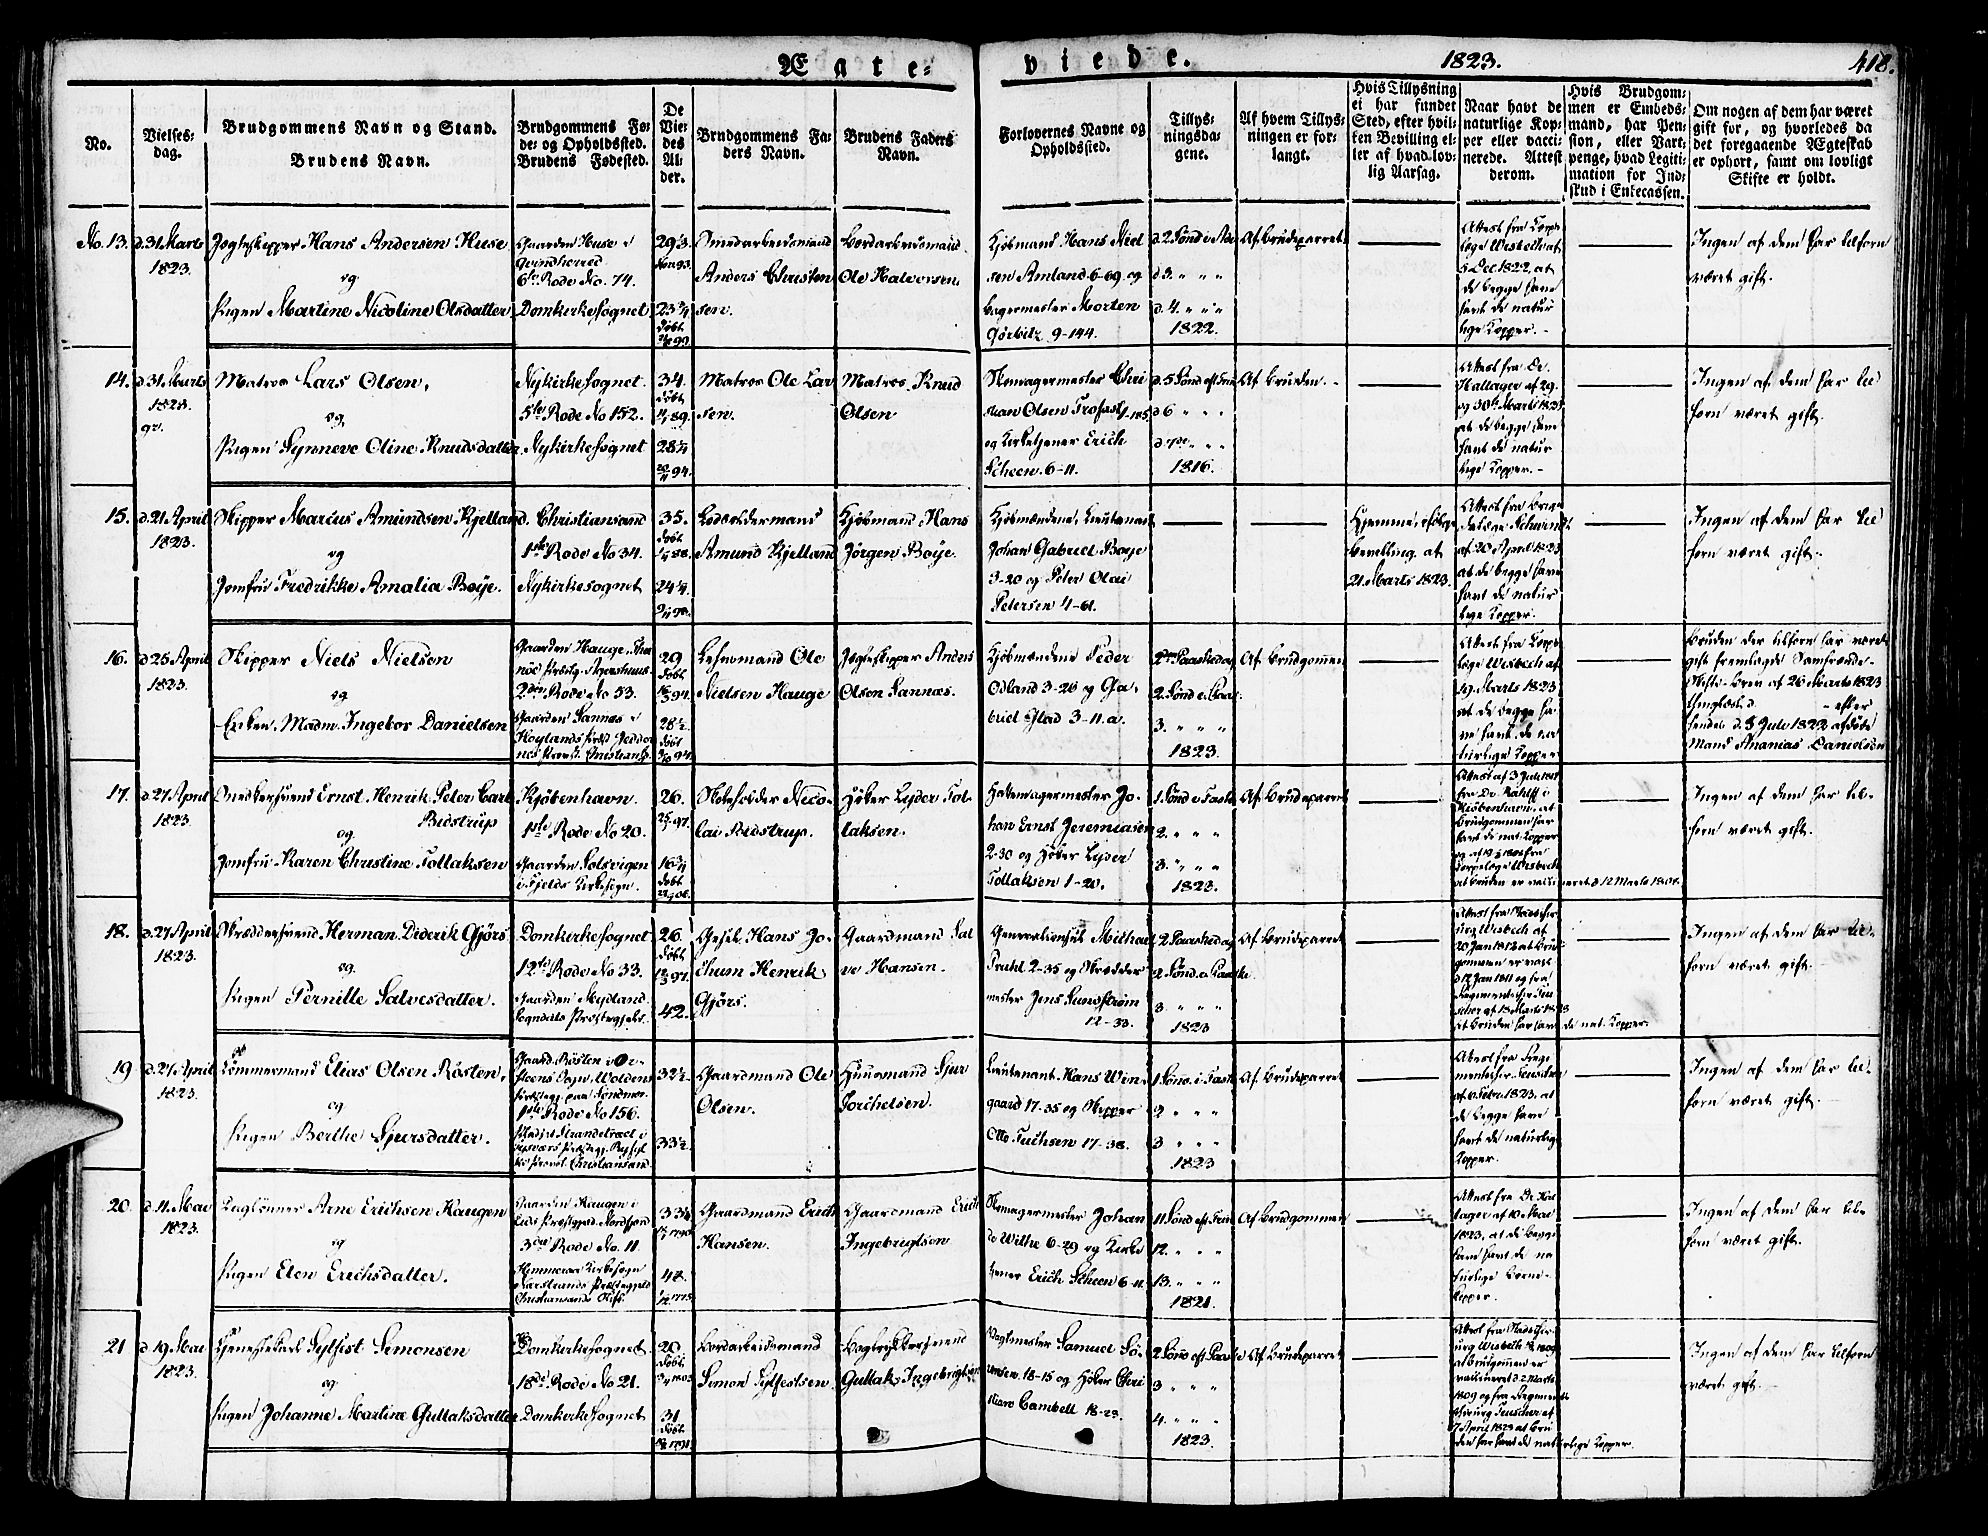 Ægte-
viede.
1823.
418.
No.
Vielses-
dag.
Brudgommens Navn og Stand.
Brudens Navn.
Brudgommens Fø-
de- og Opholdssted.
Brudens Fødested.
De
Vie-
des
Al-
der.
Brudgommens Fa-
ders Navn.
Brudens Faders
Navn.
Forlovernes Navne og
Opholdssted.
Tillys-
ningsda-
gene.
Af hvem Tillys-
ningen er for-
langt.
Hvis Tillysning
ei har fundet
Sted, efter hvil-
ken Bevilling el-
ler af hvad lov-
lig Aarsag.
Naar havt de
naturlige Kop-
per eller vacci-
nerede. Attest
derom.
Hvis Brudgom-
men er Embeds-
mand, har Pen-
sion, eller Vart-
penge, hvad Legiti-
mation for Ind-
skud i Enkecassen.
Om nogen af dem har været
gift før, og hvorledes da
det foregaaende Ægteskab
er ophørt, samt om lovligt
Skifte er holdt.
No. 13.
d. 31 Marts
1823.
Jægteskipper Hans Andersen Huse
og
Pigen Martine Nicoline Olsdatter
Gaarden Huse i
Qvindherred
6te Rode No. 74.
Domkirkesognet
29 1/3
23 3/4
døbt
Smedarbeidsmand
Anders Christen
sen.
Bordarbeidsmand
Ole Halvorsen.
Kjøbmand Hans Niel
sen Amland 6-69 og
bagermester Morten
Gørbitz 9-144.
d. 2 Sønd i Adv
d 3. " " "
d. 4. " " "
1822.
Af Brudeparret
Attest fra Kopp
læge Wisbech af
5 Dec 1822, at
de begge have
havt de natur
lige Kopper. -
Ingen af dem har tilforn
været gift.
14.
d 31 Marts
1823.
Matros Lars Olsen,
og
Pigen Synneve Oline Knudsdatter
Nykirkesognet.
5te Rode No 152.
Nykirkesognet
34.
døbt
89.
28 1/4
94.
Matros Ole Lar
sen.
Matros Knud
Olsen
Remagermester Chri
stian Olsen
og Kirketjener Erich
Scheen. 6-11.
d. 5 Sønd eft Trin
d 6 " " "
d 7de " "
1816.
Af Bruden. -
Attest fra Dr.
Hallager af 29
og 30te Marts 1823
at de begge have
havt de natur
lige Kopper. -
Ingen af dem har til
forn været gift.
15.
d. 21 April
1823.
Skipper Marcus Amundsen Kjelland.
og
Jomfru Fredrikke Amalia Bøye.
Christiansand
1ste Rode No 34.
Nykirkesognet
35.
døbt
88.
24 1/4
98.
Lodsoldermand
Amund Kjelland
Kjøbmand Hans
Jørgen Bøye.
Kjøbmændene, Lieutenant
Johan Gabriel Bøye
3-20 og Peter Olai
Petersen 4-61.
Hjemme, ifølge
bevilling at
21 Marts 1823.
af 20 April 1823
at de begge have
havt de natur
lige Kopper.
Ingen af dem har til
forn været gift.
16.
d 25 April
1823.
Skipper Niels Nielsen
og
Enken Madm. Ingebor Danielsen
2den Rode No 53.
Gaarden Sannæs i
29
døbt
94.
28 1/2
døbt
94.
Lehnsmand Ole
Nielsen Hauge
Jægteskipper Anders
Olsen Sannæs.
Kjøbmændene Peder
Odland 3-26 og Ga-
briel Glad 3-11.a.
2den Paaskedag
2. Sønd e. Paas.
3. " " "
1823.
Af Brudgommen
Attest fra Kopp
læge Wisbech af
19. Marts 1823
at de begge ha-
ve havt de na
turlige Kopper
Bruden der tilforn har været
gift fremlagde Samfrænde-
Skifte-Brev af 26 Marts 1823
efter
hendes d. 8 Julii 1822 afdøde
Mand Ananias Danielsen
17.
d. 27 April
1823.
Snedkersvend Ernst Henrik Peter Carl
Bidstrup
og
Jomfru Karen Christine Tollaksen
Kjøbenhavn.
1ste Rode No 20.
Gaarden Solsvigen
i Fjelds Kirkesogn.
26.
97.
16 3/4
døbt
Skoleholder Nico-
lai Bidstrup.
Høker Lyder Tol-
laksen.
Hattemagermester Jo-
han Ernst Jeremiasen
2-30 og Høker Lyder
Tollaksen 1-20.
1. Sønd e Paaske
2. " " "
3. " " "
1823.
Af Brudeparret
Kiøbenhavn, at
brudgommen har
havt de nat. Kopper
Koppelæge Wisbech
at Bruden er vacci
neret d 12 Marts
Ingen af dem har til-
forn været gift.
18.
d. 27 April
1823.
Skræddersvend Herman Diderik Gjørs
og
Pigen Pernille Salvesdatter.
Domkirkesognet
12te Rode No 33.
Gaarden Mydland
Sogndals Præstegjeld.
26.
døbt
97.
42.
Hans Jo-
chum Henrik
Gjørs.
Gaardmand Sal
ve Hansen.
Michael
Prahl 2-35 og Skrædder
mester Jens Sundstrøm
12-33.
2 Paaskedag
2 Sønd. e. Paaske
3 " " "
1823
Af Brudeparret
urg Wisbech af
20 Jan 1813 at Brud
gommen er vacc
d 17 Jan 1811 og fra
at Bruden har hav
de nat. Kopper.
Ingen af dem har til-
forn været gift.
19
d. 27 April
1823.
Tømmermand Elias Olsen Røsten,
og
Pigen Berthe Sjursdatter.
Gaard. Røsten i
1ste Rode No 156.
32 1/2
33 1/2
Gaardmand Ole
Olsen.
Huusmand Sjur
Torchelsen.
Lieutenant Hans Win-
gaard 17-35 og Skipper
Otto Tuchsen 17-38.
1 Sønd. i Faste
2 " " "
3 " " "
1823
Af Brudeparret
Attest fra Regi
mentschir.
af 6 Febr. 1823. at
de begge have
havt de naturlig
Kopper.
Ingen af dem har til-
forn været gift.
20
d. 11. Mai
1823.
Dagløner Arne Erichsen Haugen
og
Pigen Elen Erichsdatter.
Gaarden Haugen i
Eids Præstgjeld Nordfjord
3die Rode No. 11.
Christiansands Stift.
1790
48.
1775
Gaardmand Erich
Hansen.
Gaardmand Erich
Ingebrigtsen
Remagermester Johan
de Wilhe 6-29 og Kirke
tjener Erich Scheen 6-11
11 Sønd eft Trin
12. " " "
13. " " "
1821.
Af Brudgommen
Attest fra Dr Hal
lager af 10 Mai
1823, at de begge
have havt de na
turlige Børne-
kopper.
Ingen af dem har til-
forn været gift.
21
d 19. Mai
1823.
Tjenestekarl Sylfest Simonsen
og
Pigen Johanne Martine Gullaksdatter
Domkirkesognet
18de Rode No 21.
Domkirkesognet
20
døbt
1803
31
døbt
1791
Bordarbeidsmand
Simon Sylfestsen.
Gullak Ingebrigtsen
Vagtmester Samuel Sö-
rensen. 18-15 og Høker Chri
stian Cambell 18-23.
2 Sønd eft Paaske
3 " " "
4. " " "
1823.
Af Brudeparret
at brudgommen er
vaccineret d. 2 Marts
1809 og fra Regiments
7 April 1823 at Bru
den har havt de nat
urlige Kopper.
Ingen af dem har tilforn
været gift.